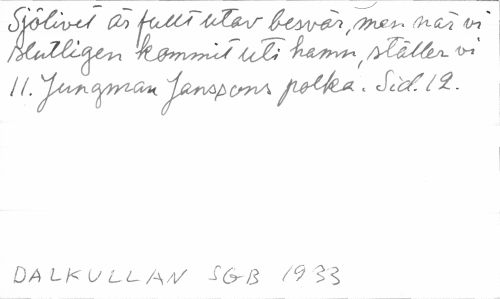 Sjölivet är fullt utav besvär, men när vi
slutligen kommit uti hamn, ställer vi
11. Jungman Janssons polka. Sid. 12.
DALKULLAN SGB 1933